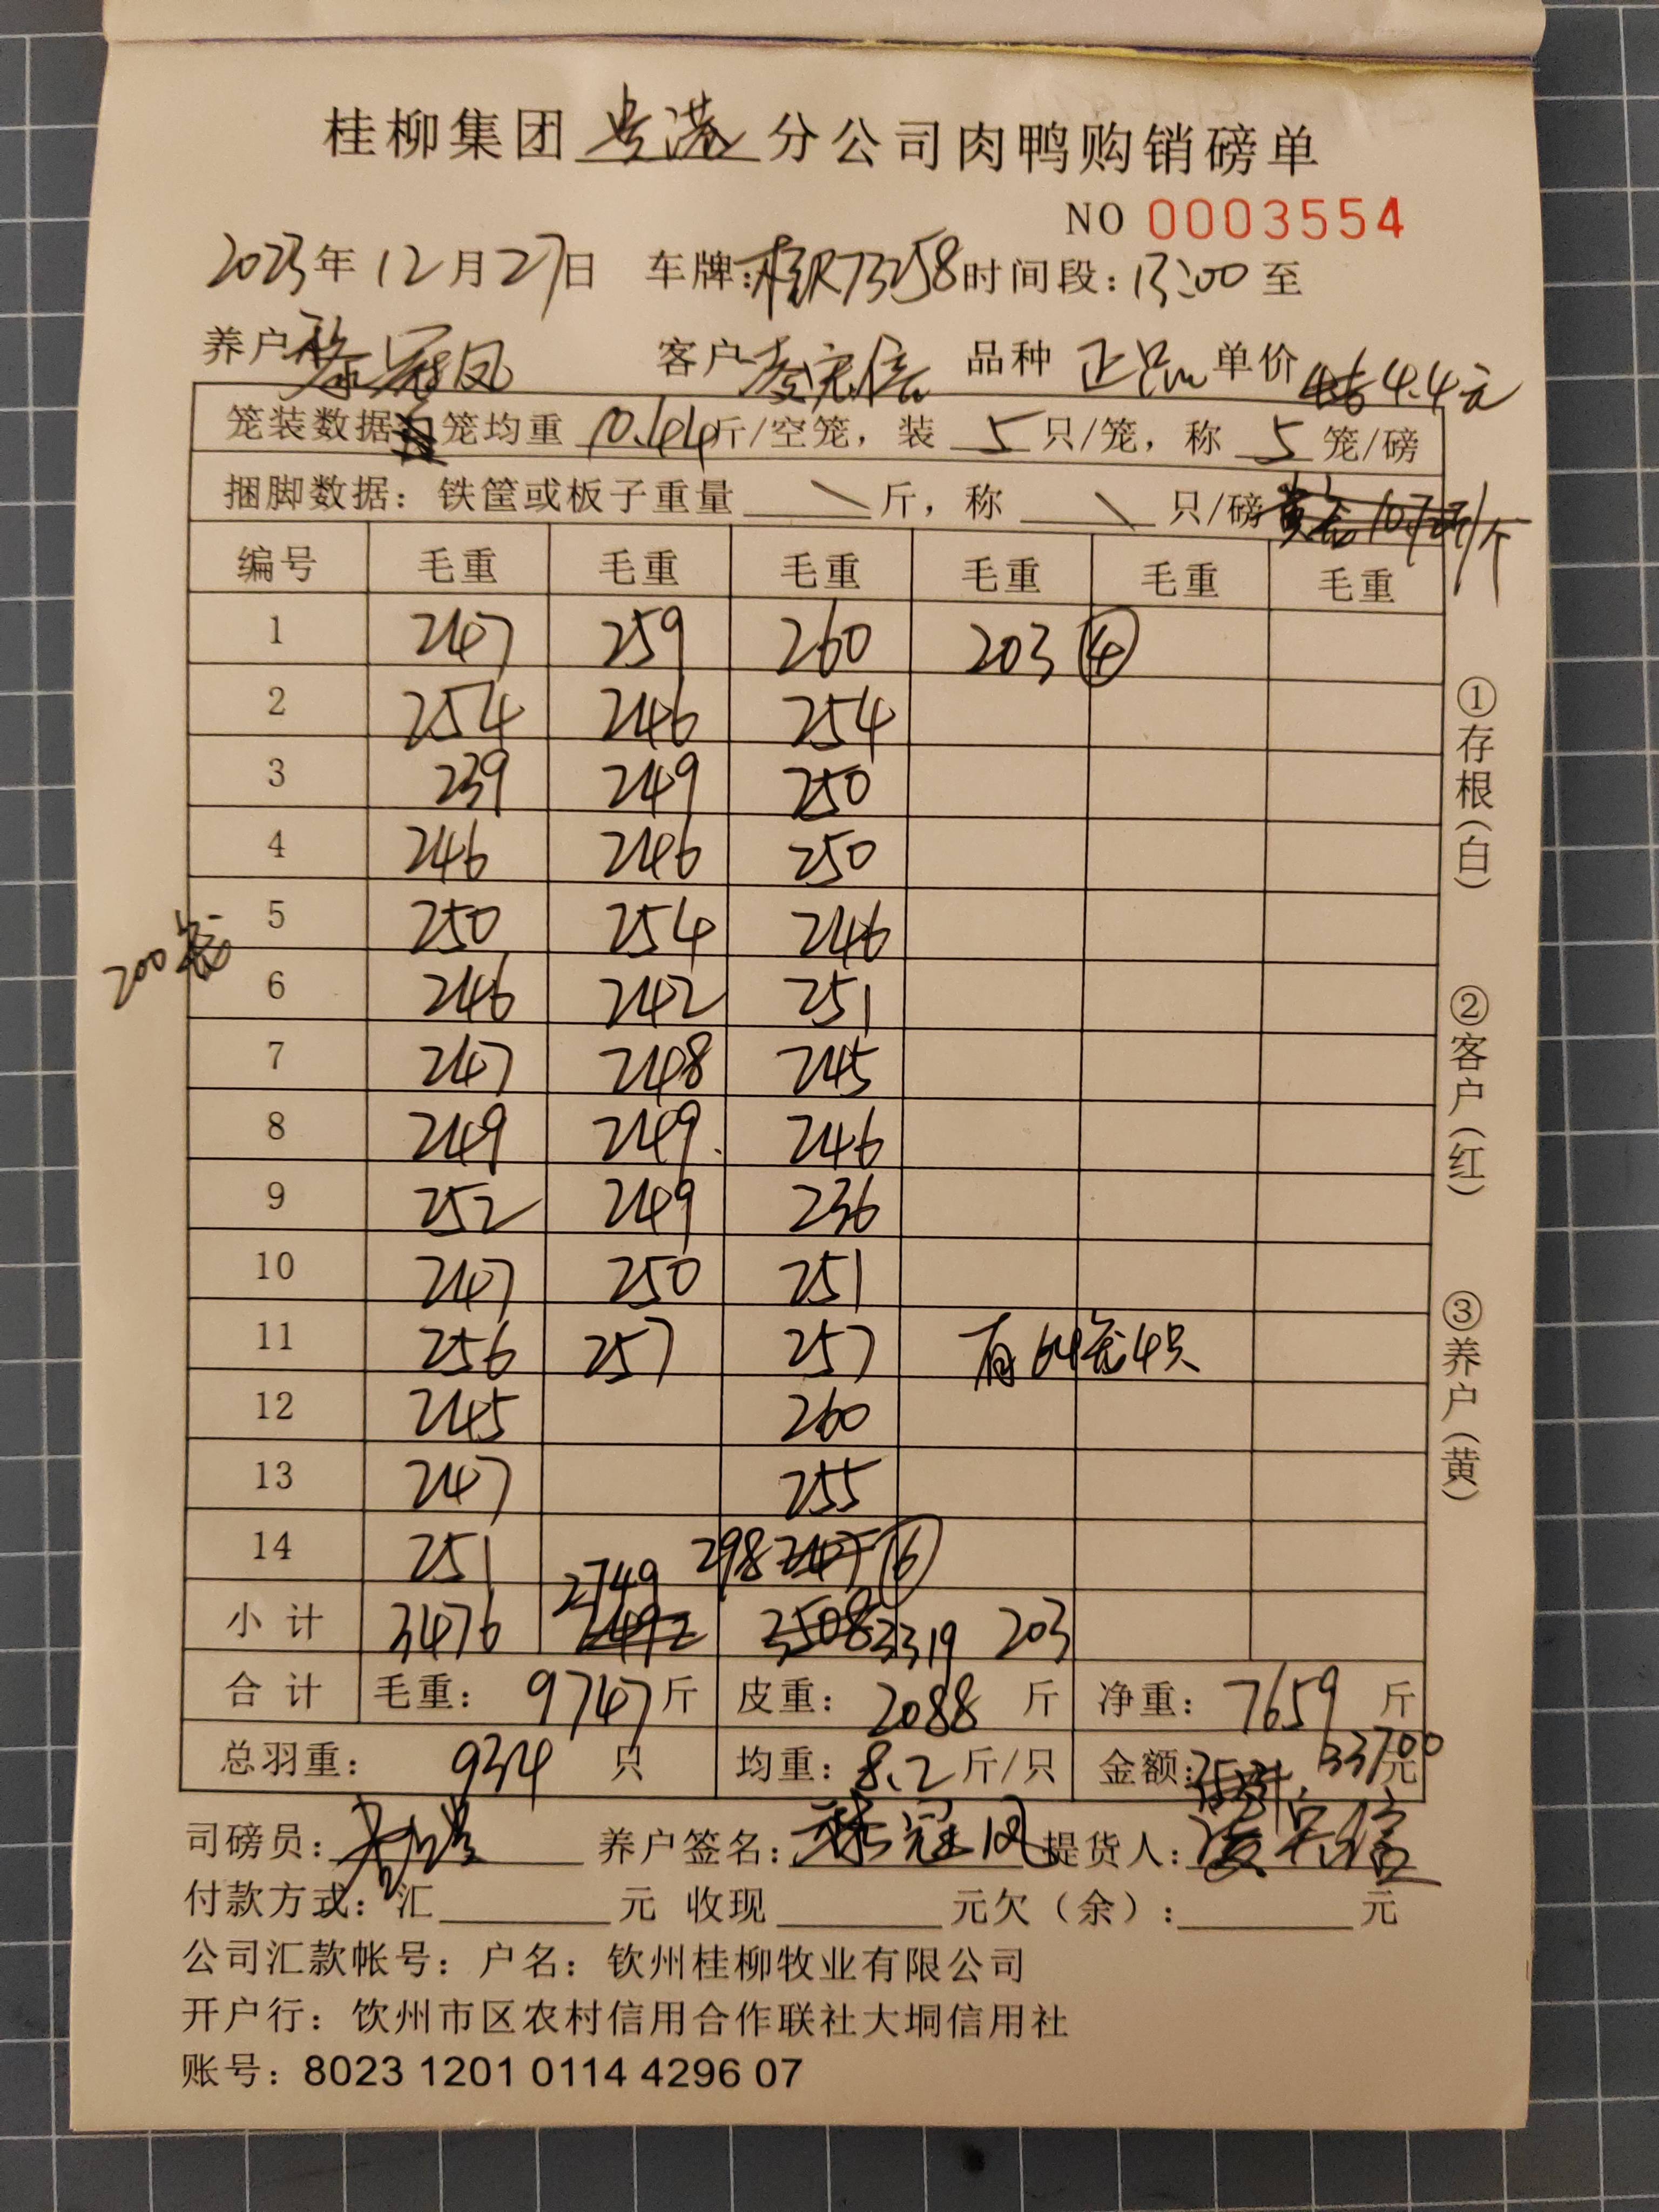 桂柳集团贵港分公司肉鸭购销磅单
NO 0003554
2023年12月27日 车牌:桂R73258时间段:13:00至
养户 冠凤 客户 凌宗信 品种 正品 单价 4.4元
笼装数据 笼均重 10.44斤/空笼，装 5 只/笼，称 5 笼/磅
捆脚数据：铁筐或板子重量 \ 斤，称 \ 只/磅
编号 毛重 毛重 毛重 毛重 毛重 毛重
1 247 259 260 203 ④
2 254 246 254
3 239 249 250
4 246 246 250
5 250 254 246
200笼
6 246 242 251
7 247 248 245
8 249 249 246
9 252 249 236
10 247 250 251
11 256 257 257 有64笼4只
12 245 260
13 247 255
14 251 298 247 ⑥
小计 3476 2749 2492 3508 3319 203
合计 毛重：9747斤 皮重：2088 斤 净重：7659 斤
总羽重：934 只 均重：8.2斤/只 金额: 33700元
司磅员： 养户签名： 冠凤 提货人：凌宗信
付款方式：汇 元 收现 元欠（余）: 元
公司汇款帐号：户名：钦州桂柳牧业有限公司
开户行：饮州市区农村信用合作联社大垌信用社
账号：8023 1201 0114 4296 07
①存根(白)
②客户(红)
③养户(黄)